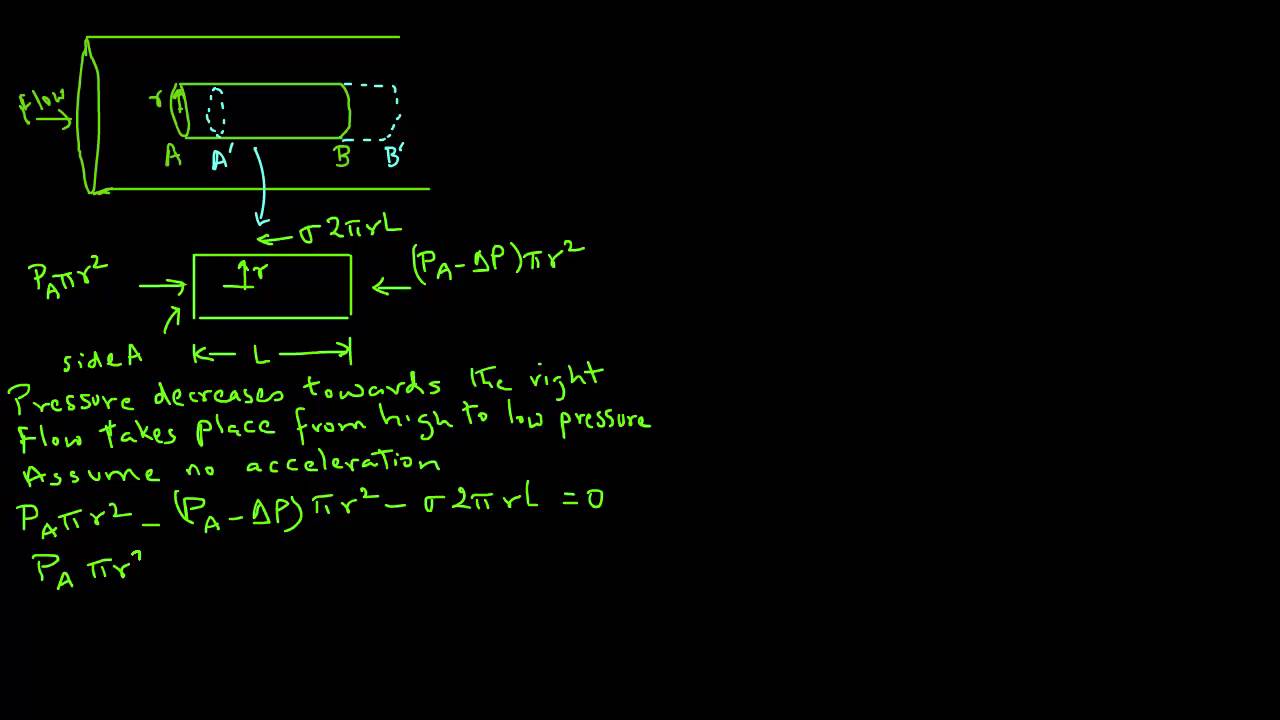 Flow
r
A A' B B'
σ 2πrL
P_A πr² r (P_A - ΔP) πr²
side A L
Pressure decreases towards the right
Flow takes place from high to low pressure
Assume no acceleration
P_A πr² - (P_A - ΔP) πr² - σ 2πrL = 0
P_A πr²